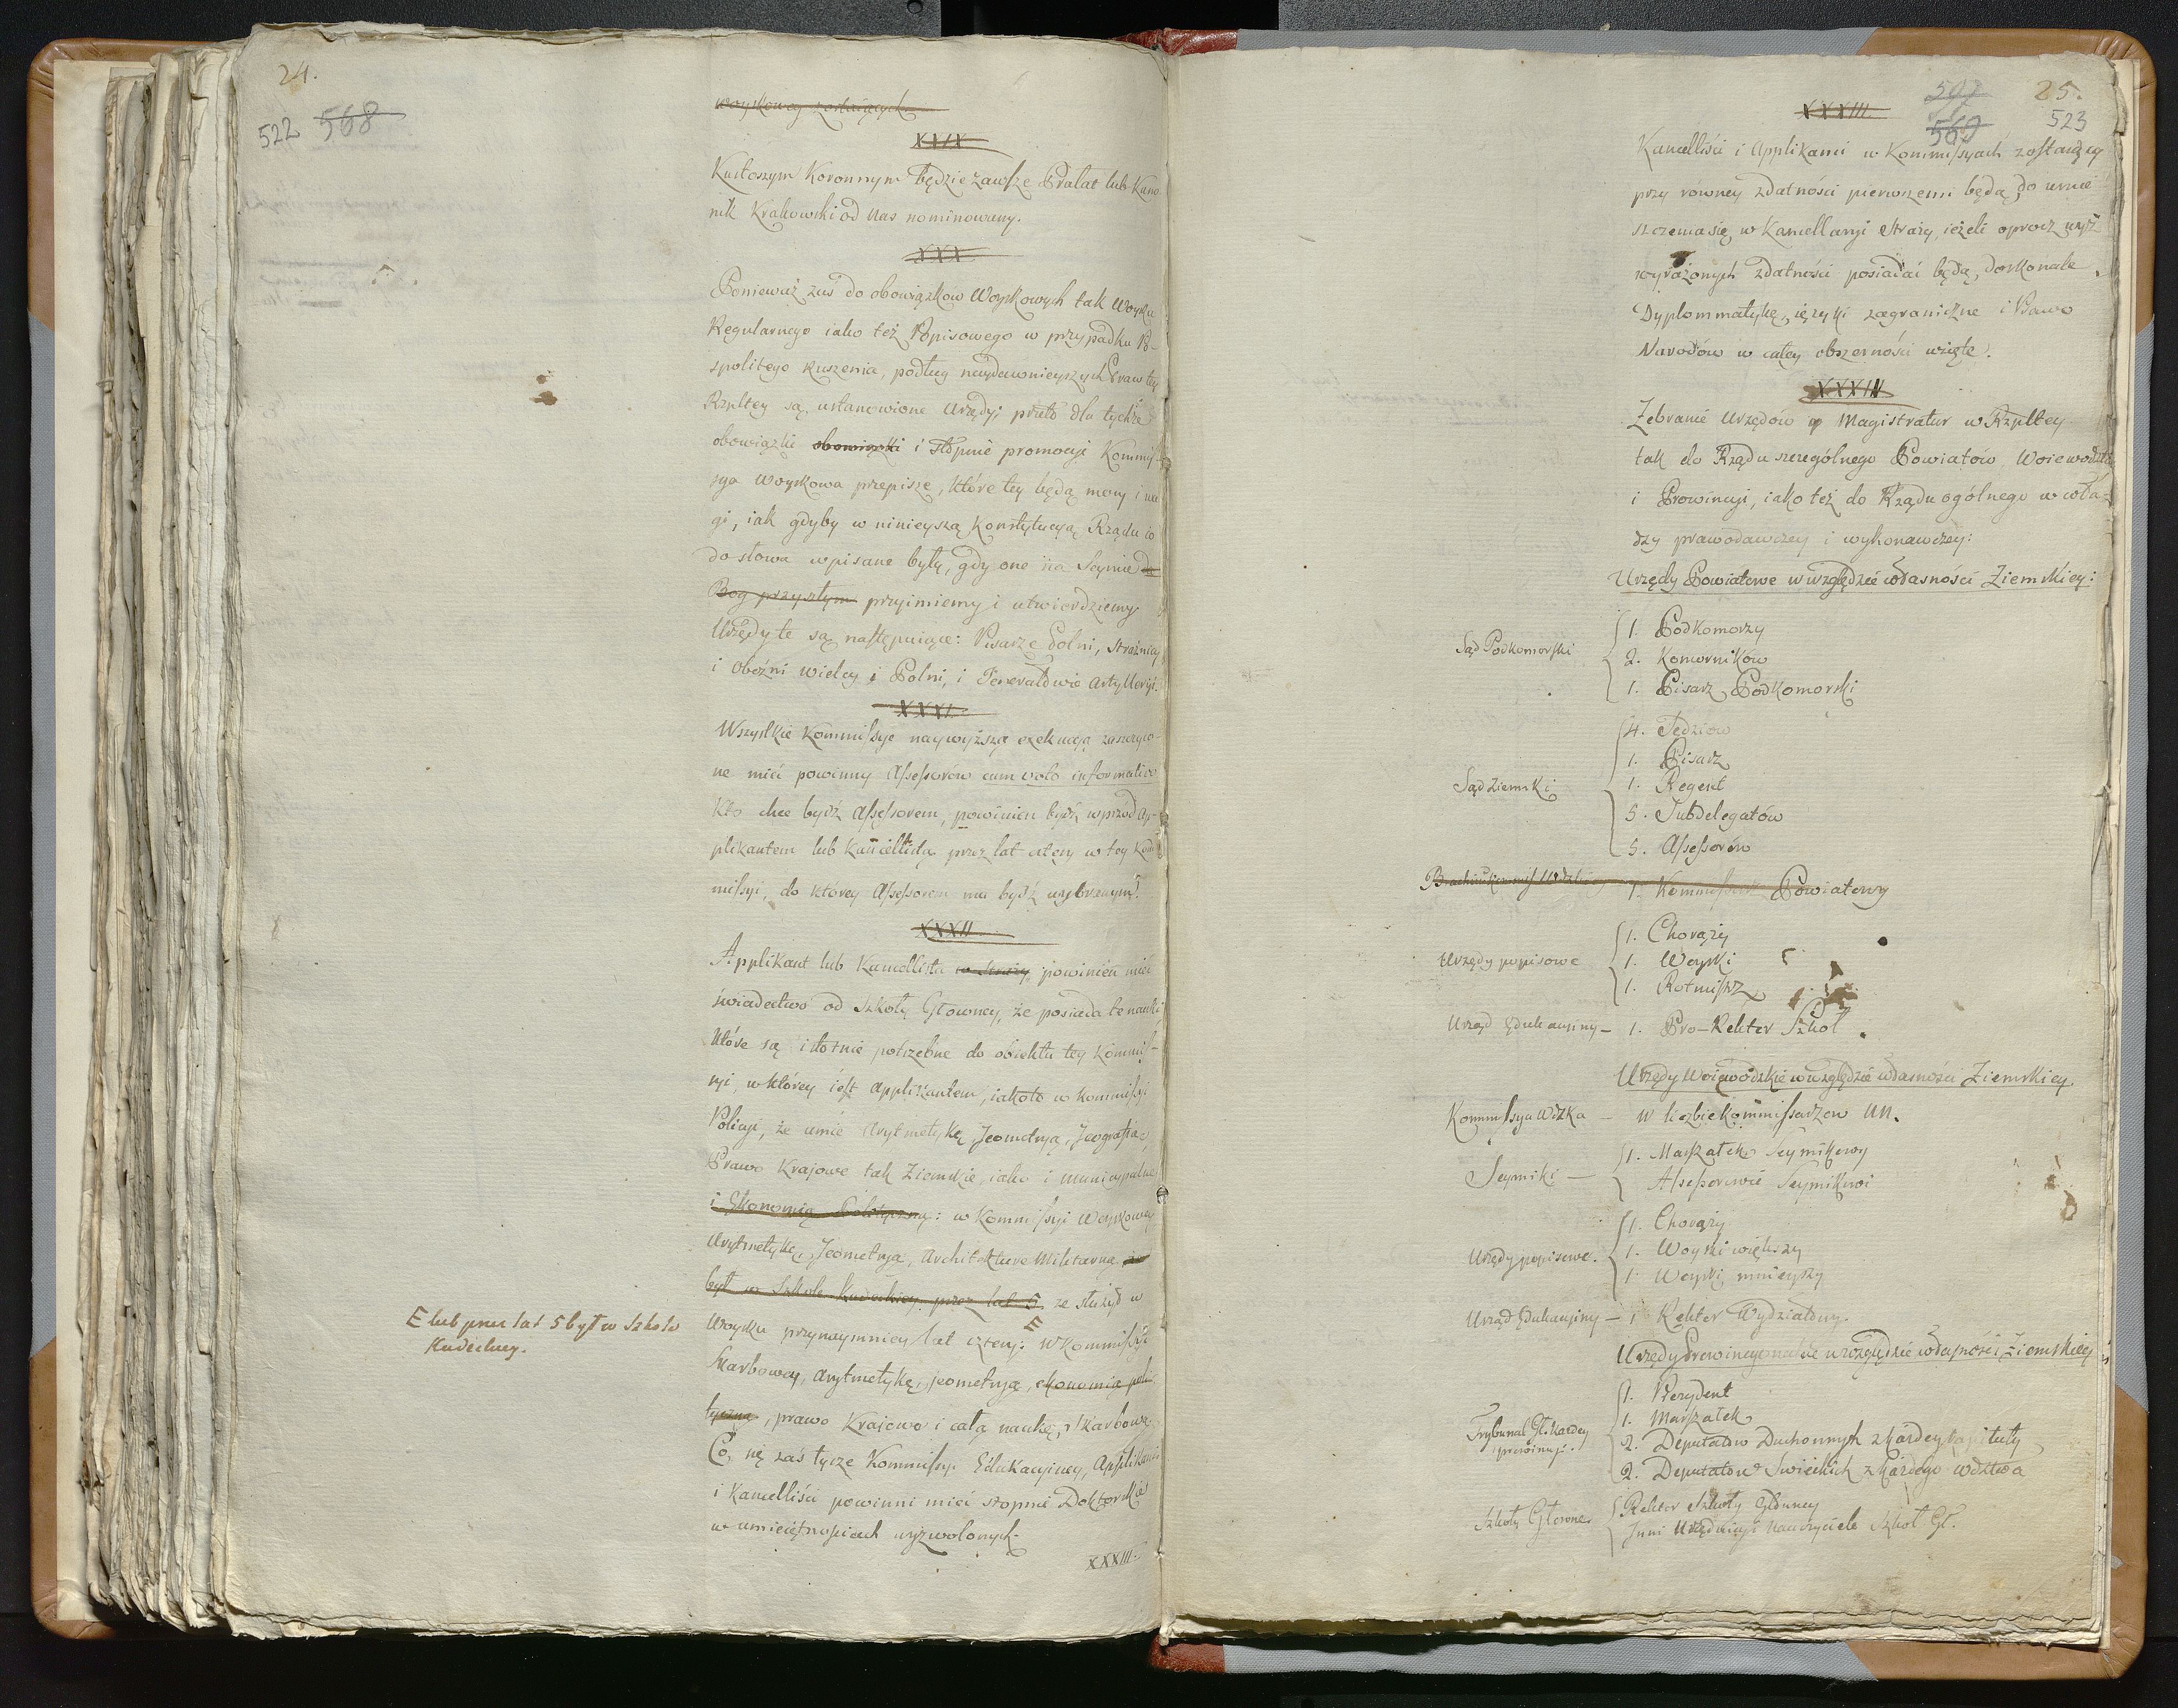 24.
522 568
woyskowey zostaiących
XXIX
Kustoszym Koronnym będzie zawsze Prałat lub Kano
nik Krakowski od nas nominowany.
XXX
Ponieważ zaś do obowiązkow Woyskowych tak Woyska
Regularnego iako też Popisowego w przypadku Po-
spolitego Ruszenia, podług naydawnieyszych Praw tey
Rzpltey są ustanowione Urzędy; przeto dla tychże
obowiązki obowiązki i stopnie promocyi Kommis-
sya Woyskowa przepisze, które tey będą mocy i wa
gi, iak gdyby w ninieyszą Konstytucyą Rządu co
do słowa wpisane były, gdy one na Seymie da
Bog przyszłym przyimiemy i utwierdziemy
Urzędy te są następuiące: Pisarze Polni, Strażnicy
i Oboźni wielcy i Polni, i Generałowie Artylleryi.
XXXI.
Wszystkie Kommissye naywyższą exekucyą zaszczyco-
ne mieć powinny Assessorów cum voto informativo
Kto chce bydź Assessorem, powinien bydź wprzód Ap-
plikantem lub Kancellistą przez lat cztery w tey Kom
missyi, do którey Assessorem ma bydź wybranym.
XXXII
Applikant lub Kancellista w Straży powinien mieć
świadectwo od Szkoły Głowney, że posiada te nauki
które są istotnie potrzebne do obiektu tey Kommis-
syi w którey iest Applikantem, iakoto w Kommissyi
Policyi, że umie Arytmetykę, Jeometryą, Jeografią,
Prawo Krajowe tak Ziemskie, iako i Municypalne
i Ekonomią Polityczną: w Kommissyi Woyskowey
Arytmetykę, Jeometryą, Architekturę Militarną, że
był w Szkole Kadeckiey przez lat 5 ze służył w
Woysku przynaymniey lat cztery: E W Kommissyi
E lub przez lat 5 był w Szkole
Kadeckiey.
Skarbowey, Arytmetykę, jeometryą, ekonomią poli
tyczną, prawo Krajowe i całą naukę Skarbową.
Co się zaś tycze Kommissyi Edukacyiney, Applikanci
i Kancelliści powinni mieć stopnie Doktorskie
w umieiętnościach wyzwolonych.
XXXIII.
507 25.
569 523
XXXIII.
Kancelliści i Applikanci w Kommissyach zostaiący
przy rowney zdatności pierwszemi będą do umie
szczenia się w Kancellaryi Straży, ieżeli oprocz wyż
wyrażonych zdatności posiadać będą doskonale
Dyplommatykę, ięzyki zagraniczne i Prawo
Narodów w całey obszerności wzięte.
XXXIV
Zebranie Urzędów y Magistratur w Rzpltey
tak do Rządu szczególnego Powiatów, Woiewodztw
i Prowincyi, iako też do Rządu ogólnego w wła-
dzy prawodawczey i wykonawczey:
Urzędy Powiatowe w względzie własności Ziemskiey:
Sąd Podkomorski
1. Podkomorzy
2. Komorników
1. Pisarz Podkomorski
Sąd Ziemski
4. Sędziow
1. Pisarz
1. Regent
5. Subdelegatów
5. Assessorów
1. Kommissarz Powiatowy
Urzędy popisowe
1. Chorąży
1. Woyski
1. Rotmistrz
Urząd Edukacyiny – 1. Pro-Rektor Szkół
Urzędy Woiewodzkie w względzie własności Ziemskiey.
Kommissya Wdzka – w liczbie kommissarzow NN.
Seymiki –
1. Marszałek Seymikowy
Assessorowie Seymikowi
Urzędy popisowe.
1. Chorąży
1. Woyski większy
1. Woyski mnieyszy
Urząd Edukacyiny – 1 Rektor Wydziałowy.
Urzędy Prowincyonalne w względzie własności Ziemskiey
Trybunał Gł. każdey
prowincyi.
1. Prezydent
1. Marszałek
2. Deputatów Duchownych z każdey kapituły
2. Deputatów Swieckich z każdego Wdztwa
Szkoły Głowne.
Rektor Szkoły Głowney
Inni Urzędnicy i Nauczyciele Szkoł Gł.